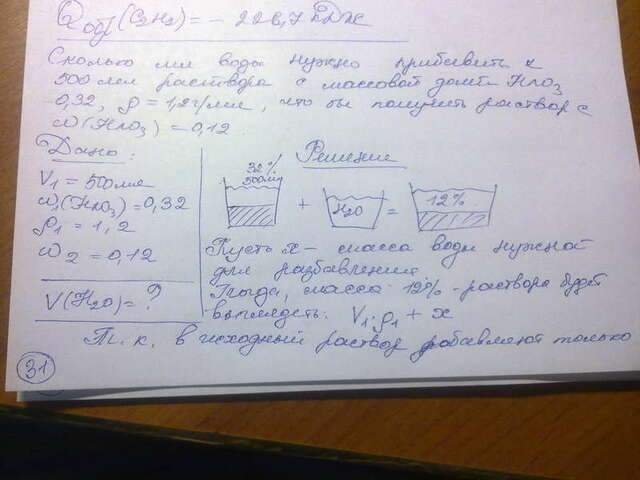 Q обр(C2H2) = - 226,7 КДж
Сколько мл воды нужно прибавить к
500 мл раствора с массовой долей HNO3
0,32, ρ = 1,2 г/мл, что бы получить раствор с
ω(HNO3) = 0,12
Дано:
V1 = 500 мл
ω1(HNO3) = 0,32
ρ1 = 1,2
ω2 = 0,12
V(H2O) = ?
Решение
32%
500 мл
+ H2O = 12%
Пусть x - масса воды нужной
для разбавления.
Тогда, масса 12% - раствора будет
выглядеть: V1·ρ1 + x
Т. к. в исходный раствор добавляют только
31